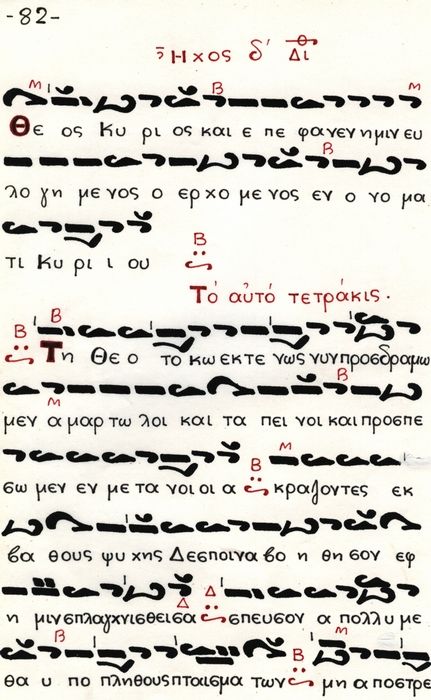 -82-
Ἦχος δ' Δι
Θε ος Κυ ρι ος και ε πε φανεν ημιν ευ
λο γη με νος ο ερ χο με νος εν ο νο μα
τι Κυ ρι ι ου
Τό αὐτό τετράκις.
Τη Θε ο το κω εκτε νως νυν προσδραμω
μεν α μαρ τω λοι και τα πει νοι και προσπε
σω μεν εν με τα νοι οι α κραζοντες εκ
βα θους ψυ χης Δεσποινα βο η θη σον εφ
η μιν σπλαγχνισθεισα σπευσον α πολλυ με
θα υ πο πληθους πταισμα των μη α ποστρε